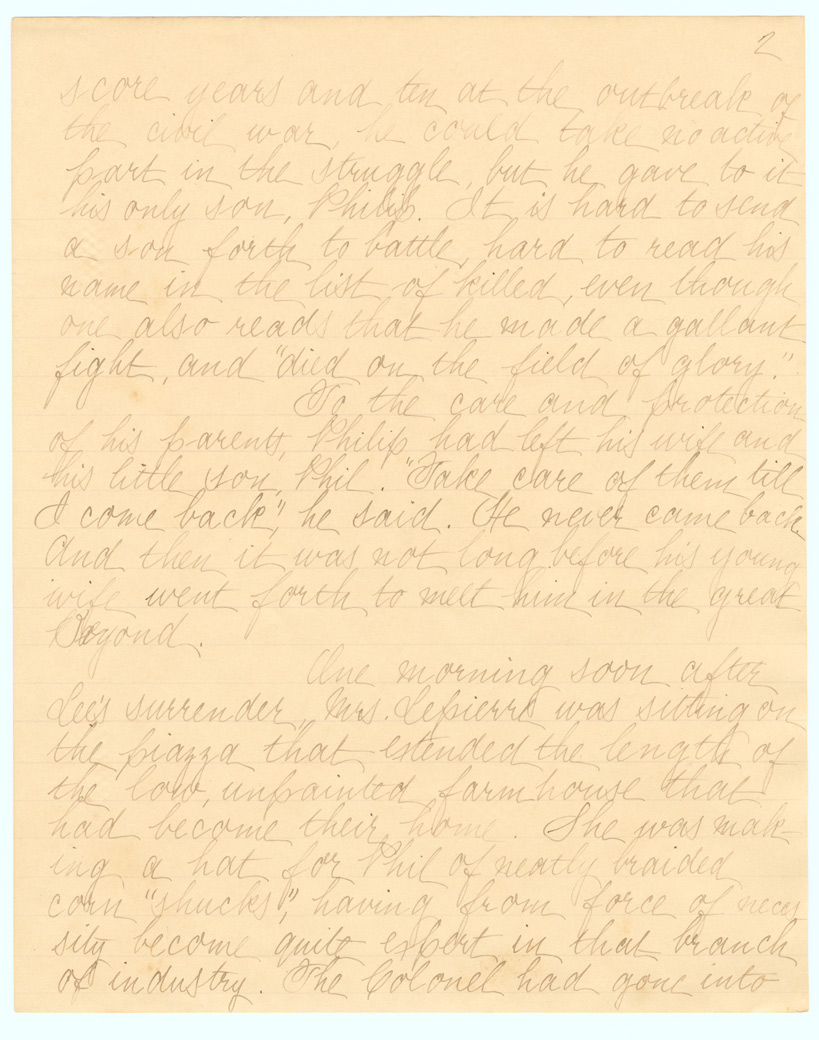 2
score years and ten at the outbreak of
the civil war, he could take no active
part in the struggle, but he gave to it
his only son, Philip. It is hard to send
a son forth to battle, hard to read his
name in the list of killed, even though
one also reads that he made a gallant
fight, and "died on the field of glory."
To the care and protection
of his parents, Philip had left his wife and
his little son, Phil. "Take care of them till
I come back," he said. He never came back.
And then it was not long before his young
wife went forth to meet him in the great
Beyond.
One morning soon after
Lee's surrender, Mrs. Lepierre was sitting on
the piazza that extended the length of
the low, unpainted farmhouse that
had become their home. She was mak-
ing a hat for Phil of neatly braided
corn "shucks", having from force of neces
sity become quite expert in that branch
of industry. The Colonel had gone into